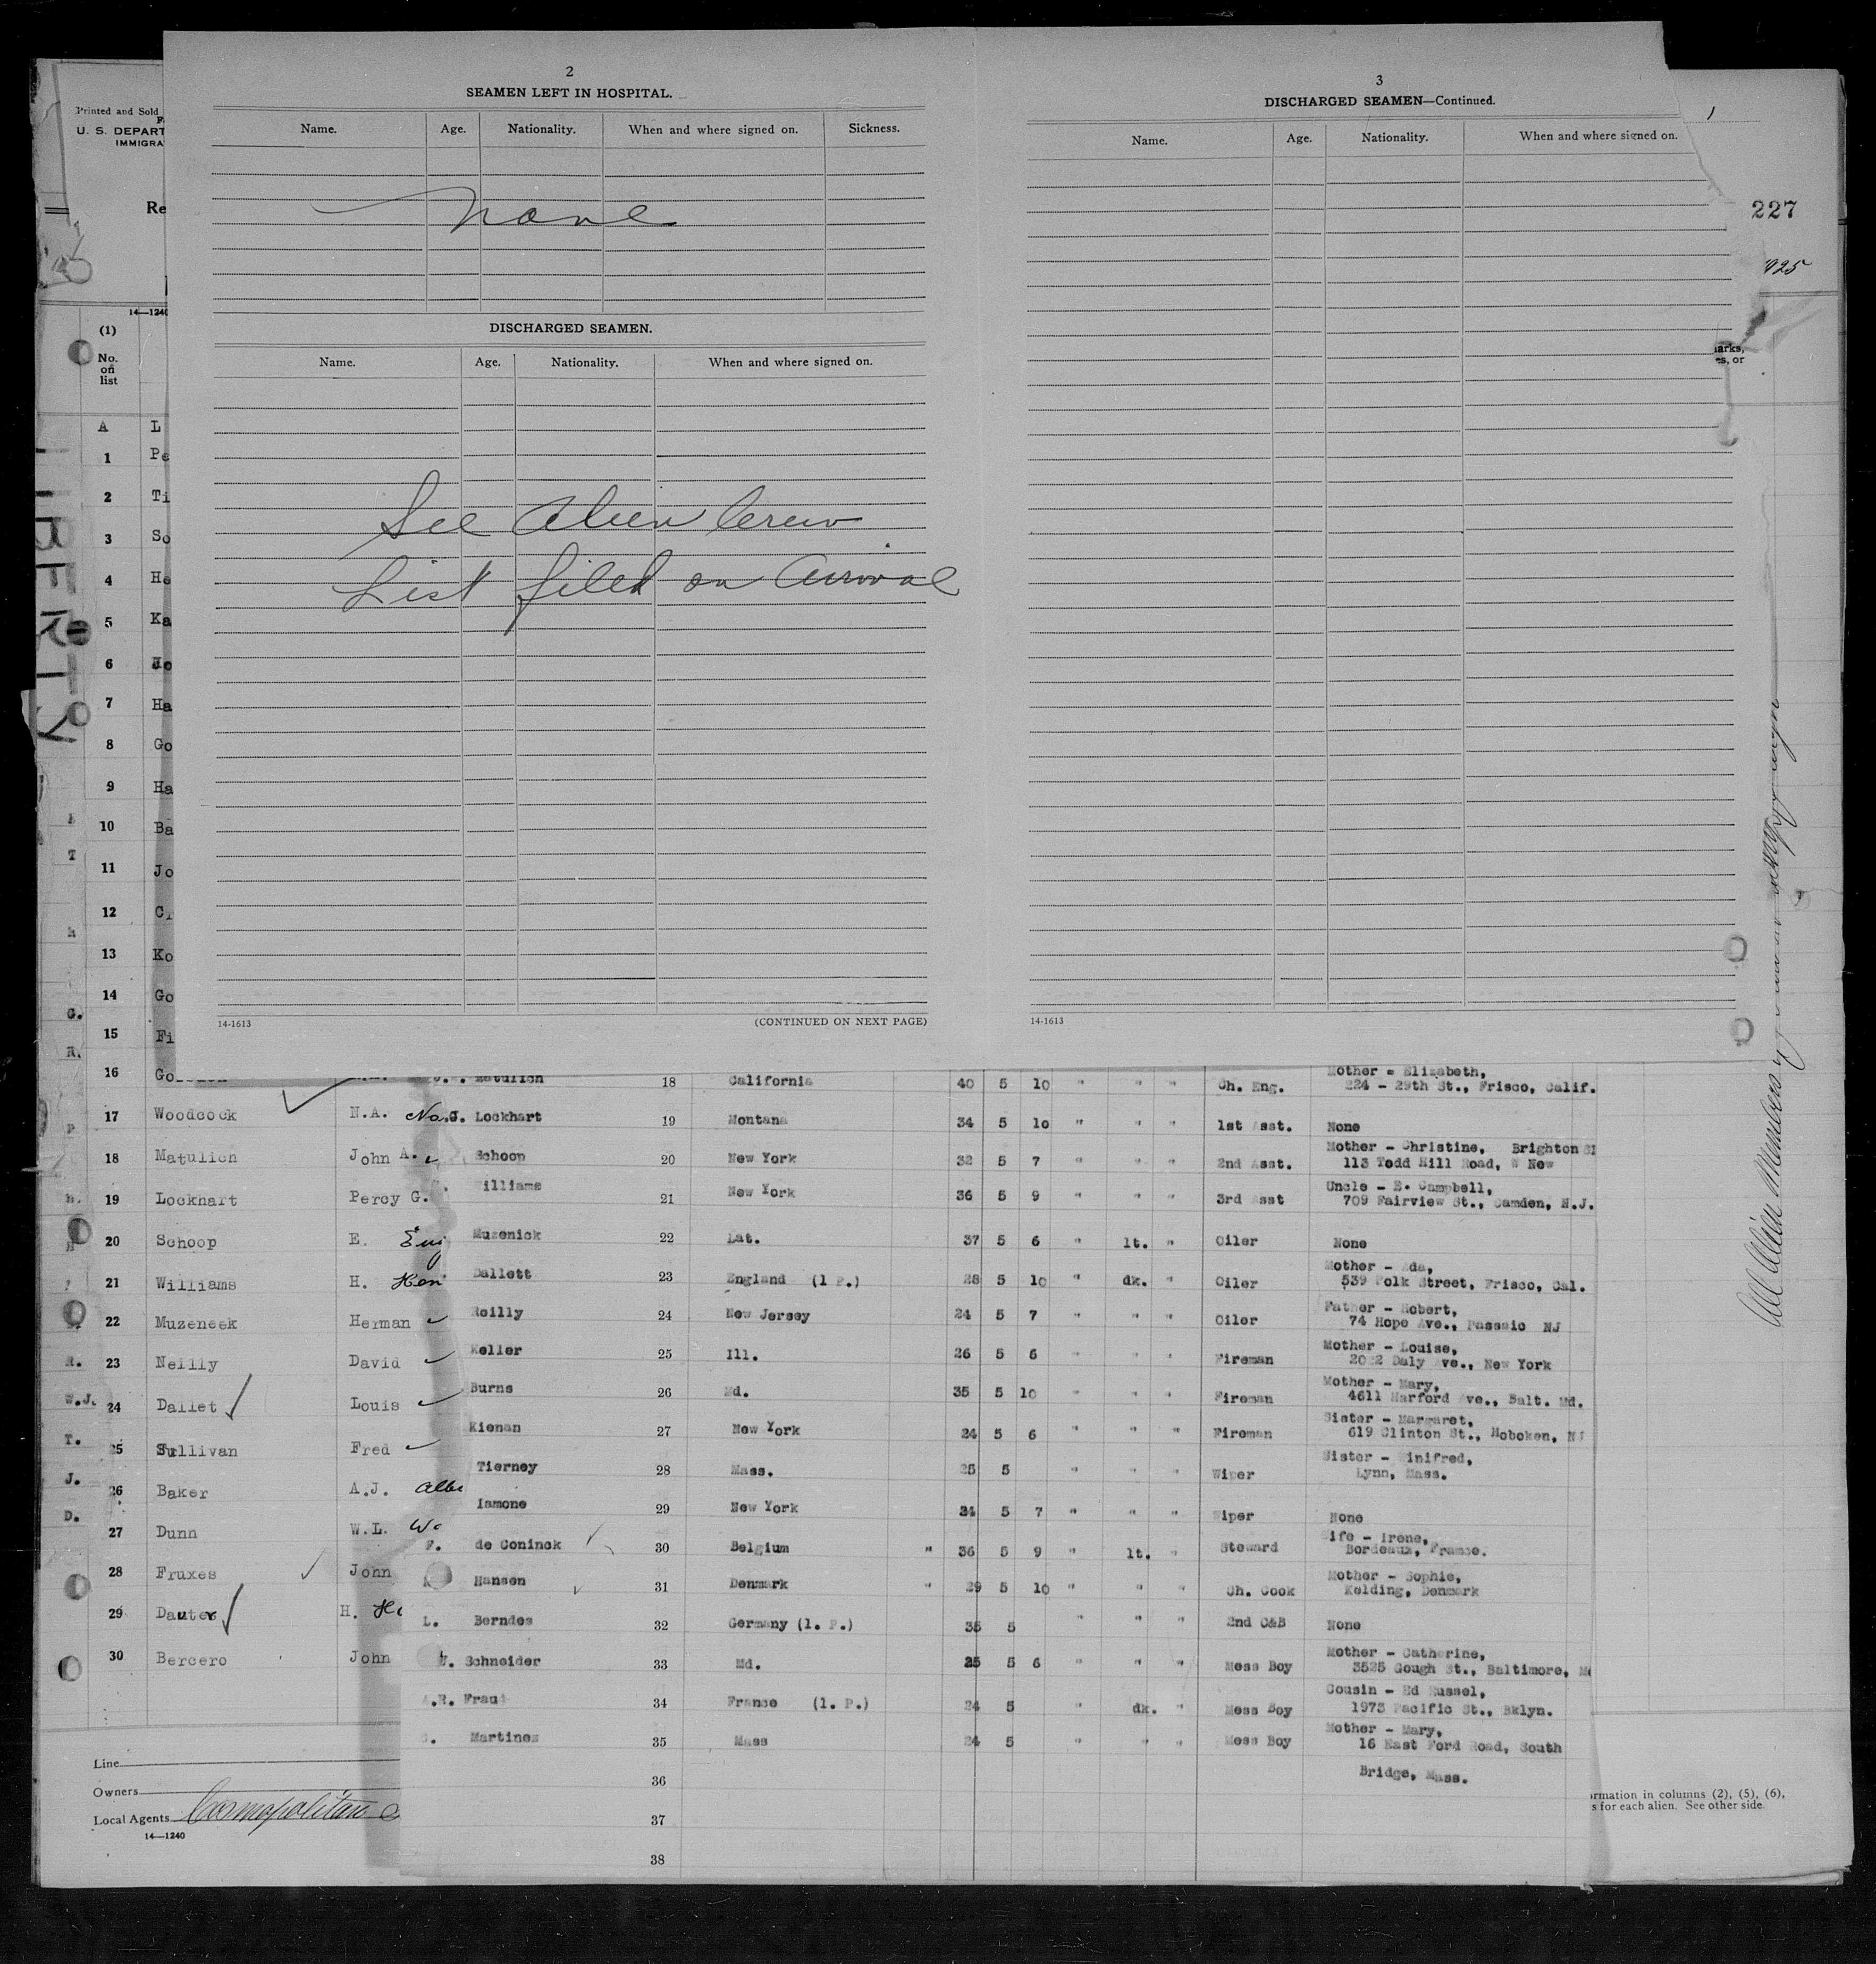 2
SEAMEN LEFT IN HOSPITAL.
Name. Age. Nationality. When and where signed on. Sickness.
None
DISCHARGED SEAMEN.
Name. Age. Nationality. When and where signed on.
See Alien Crew
List filed on Arrival
14-1613 (CONTINUED ON NEXT PAGE)
3
DISCHARGED SEAMEN—Continued.
Name. Age. Nationality. When and where signed on.
14-1613
Printed and Sold
U. S. DEPART
IMMIGRA
Re
227
14—1240
(1)
No.
on
list
arks,
es, or
A L
1 Pe
2 Ti
3 So
4 He
5 Ka
6 Jo
7 Ha
8 Go
9 Ha
10 Ba
11 Jo
12 Cr
13 Ko
14 Go
15 Fi
16 Go
17 Woodcock N.A.
18 Matulich John A.
19 Lockhart Percy G.
20 Schoop E.
21 Williams H.
22 Muzeneek Herman
23 Neilly David
R.
W.J. 24 Dallet Louis
T. 25 Sullivan Fred
J. 26 Baker A.J.
D. 27 Dunn W.L.
28 Fruxes John
29 Dauter H.
30 Bercero John
Matulich 18 California 40 5 10 " " " Ch. Eng. Mother - Elizabeth,
224 - 29th St., Frisco, Calif.
G. Lockhart 19 Montana 34 5 10 " " " 1st Asst. None
Schoop 20 New York 32 5 7 " " " 2nd Asst. Mother - Christine, Brighton
113 Todd Hill Road, W New
Williams 21 New York 36 5 9 " " " 3rd Asst Uncle - E. Campbell,
709 Fairview St., Camden, N.J.
Muzenick 22 Lat. 37 5 6 " lt. " Oiler None
Dallett 23 England (l P.) 28 5 10 " dk. " Oiler Mother - Ada,
539 Polk Street, Frisco, Cal.
Reilly 24 New Jersey 24 5 7 " " " Oiler Father - Robert,
74 Hope Ave., Passaic NJ
Keller 25 Ill. 26 5 6 " " " Fireman Mother - Louise,
Daly Ave., New York
Burns 26 Md. 35 5 10 " " " Fireman Mother - Mary,
4611 Harford Ave., Balt. Md.
Kienan 27 New York 24 5 6 " " " Fireman Sister - Margaret,
619 Clinton St., Hoboken, NJ
Tierney 28 Mass. 25 5 " " " Wiper Sister - Winifred,
Lynn, Mass.
Iamone 29 New York 24 5 7 " " " Wiper None
F. de Coninck 30 Belgium " 36 5 9 " lt. " Steward Wife - Irene,
Bordeaux, France.
Hansen 31 Denmark " 29 5 10 " " " Ch. Cook Mother - Sophie,
Kolding, Denmark
L. Berndes 32 Germany (l. P.) 35 5 " " " 2nd C&B None
W. Schneider 33 Md. 25 5 6 " " " Mess Boy Mother - Catherine,
3525 Gough St., Baltimore, M
A.R. Fraui 34 France (l. P.) 24 5 " dk. " Mess Boy Cousin - Ed Russel,
1973 Pacific St., Bklyn.
Martinez 35 Mass 24 5 " " " Mess Boy Mother - Mary,
16 East Ford Road, South
Bridge, Mass.
36
37
38
Line
Owners
Local Agents Cosmopolitan
14—1240
ormation in columns (2), (5), (6),
s for each alien. See other side.
All Alien Members